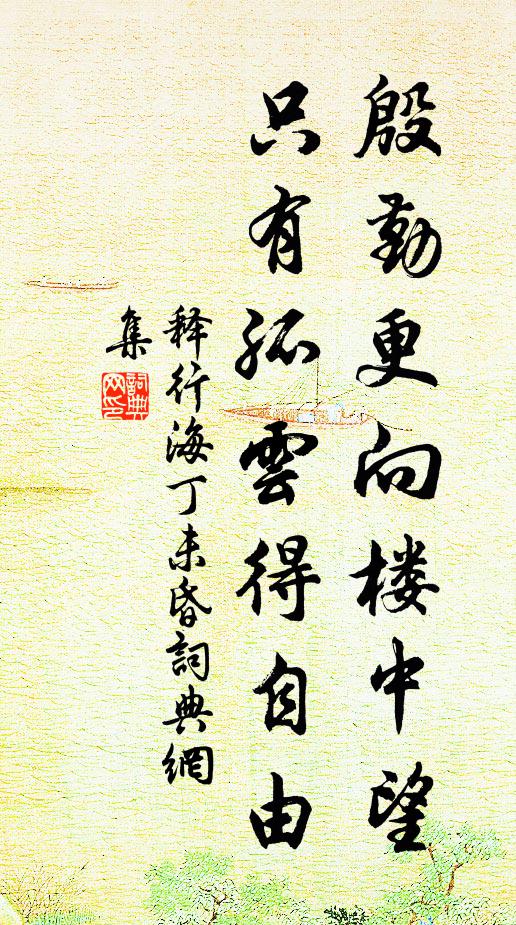 殷勤更向楼中望
只有孤雲得自由
释行海丁未昏詞典網
集
詞典网印